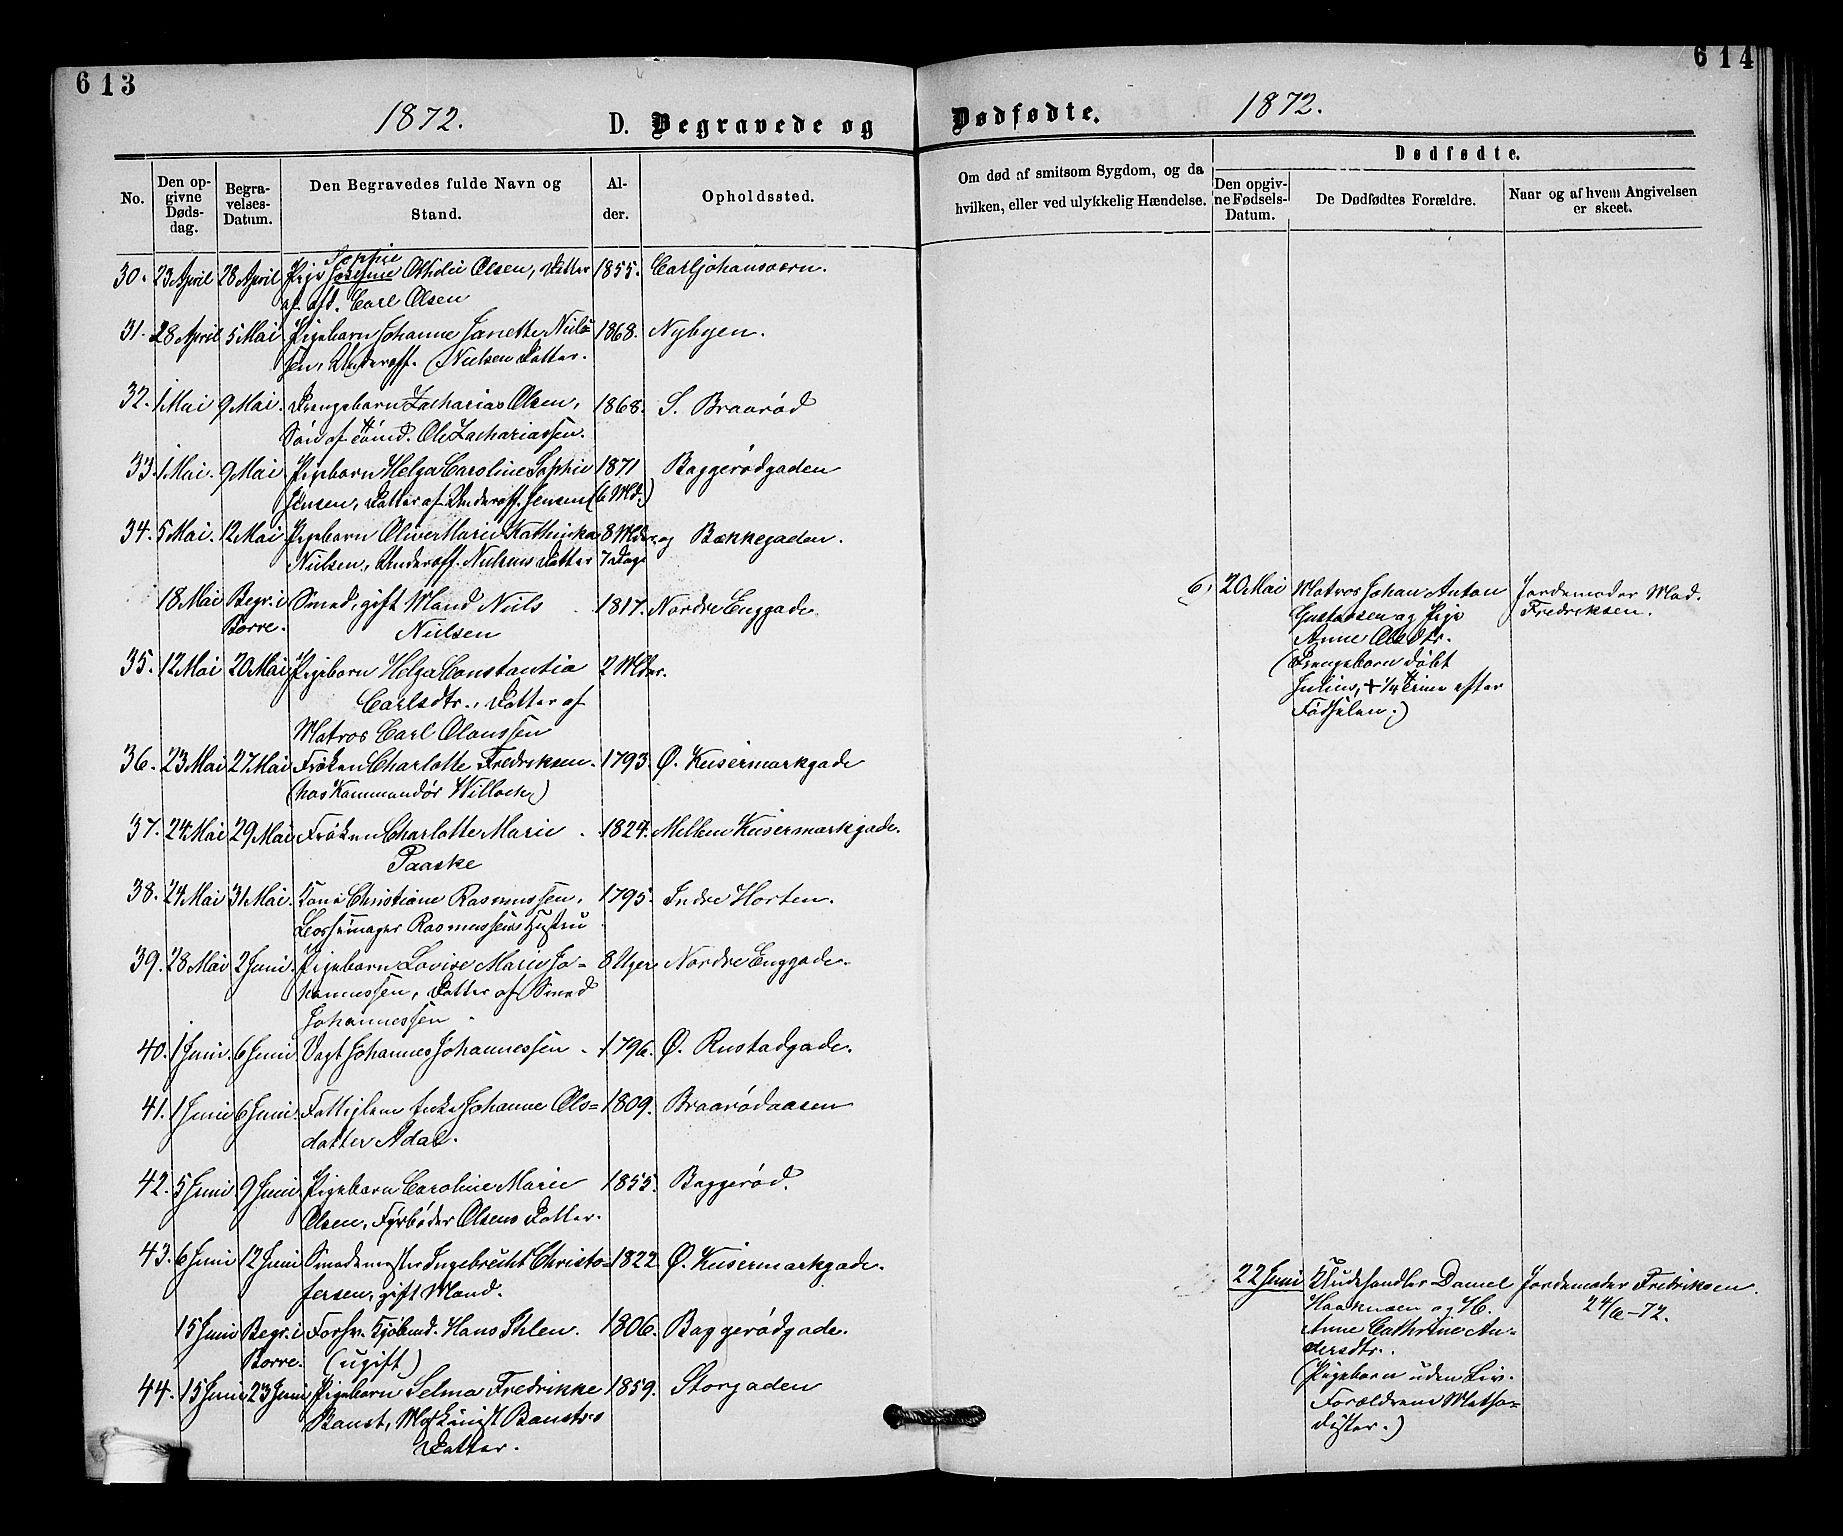 613
1872.
D. Begravede og
No.
Den opgivne Dødsdag.
Begravelses-Datum.
Den Begravedes fulde Navn og Stand.
Alder.
Opholdssted.
30. 23 April 28 April Pige Sophie Josefine Othilie Olsen, Datter 1855. Carljohansværn.
af afd. Carl Olsen
31. 28 April 5 Mai Pigebarn Johanne Janette Niel- 1868. Nybyen.
sen, Underoff. Nielsen Datter.
32. 1 Mai 9 Mai. Drengebarn Zacharias Olsen, 1868. S. Braarød
Søn af Tømd. Ole Zachariassen.
33. 1 Mai. 9 Mai Pigebarn Helga Caroline Sophie 1871 Baggerødgaden
Jensen, Datter af Underoff. Jensen (6 Md.)
34. 5 Mai. 12 Mai Pigebarn Olive Marie Kathinka 8 Mdr. og Bækkegaden.
Nielsen, Underoff. Nielsens Datter 7 Dage
18 Mai Begr. i Smed, gift Mand Niels 1817. Nordre Enggade.
Borre. Nielsen
35. 12 Mai 20 Mai Pigebarn Helga Constantia 2 Mdr.
Carlsdtr., Datter af
Matros Carl Olaussen
36. 23 Mai 27 Mai Frøken Charlotte Fredriksen. 1793. Ø. Keisermarkgade
(hos Kommandør Willoch)
37. 24 Mai 29 Mai Frøken Charlotte Marie 1824. Mellem Keisermarkgade.
Paaske
38. 24 Mai 31 Mai. Kone Christiane Rasmussen, 1795. Indre Horten.
Rasmussens Hustru
39. 28 Mai 2 Juni. Pigebarn Lovise Marie Jo- 8 Uger Nordre Enggade.
hannessen, Datter af Smed
Johannessen
40. 1 Juni. 6 Juni Vagt Johannes Johannessen 1796. Ø. Rustadgade.
41. 1 Juni 6 Juni. Fattiglem Enke Johanne Ols- 1809. Braarødaasen
datter Adal.
42. 5 Juni 9 Juni. Pigebarn Caroline Marie 1855. Baggerød.
Olsen, Fyrbøder Olsens Datter.
43. 6 Juni 12 Juni Smedemester Ingebrecht Christo- 1822 Ø. Keisermarkgade.
fersen, gift Mand.
15 Juni Begr. i Forhv. Kjøbmd. Hans Ihlen. 1806. Baggerødgade.
Borre. (ugift)
44. 15 Juni 23 Juni Pigebarn Selma Fredrikke 1859. Storgaden
Baust, Maskinist Bausts
Datter.
614
Dødfødte. 1872.
Om død af smitsom Sygdom, og da
hvilken, eller ved ulykkelig Hændelse.
Dødfødte.
Den opgivne Fødsels-Datum.
De Dødfødtes Forældre.
Naar og af hvem Angivelsen er skeet.
6. 20 Mai Matros Johan Anton Jordemoder Mad.
Gustavsen og Pige Fredriksen.
Anne Olsdtr.
(Drengebarn døbt
Julius, + 1/4 Time efter
Fødselen.)
22 Juni Kludehandler Daniel Jordemoder Fredriksen.
Haaknsen og H. 24/6-72.
Anne Cathrine An-
dersdtr.
(Pigebarn uden Liv.
Forældrene Metho-
dister.)